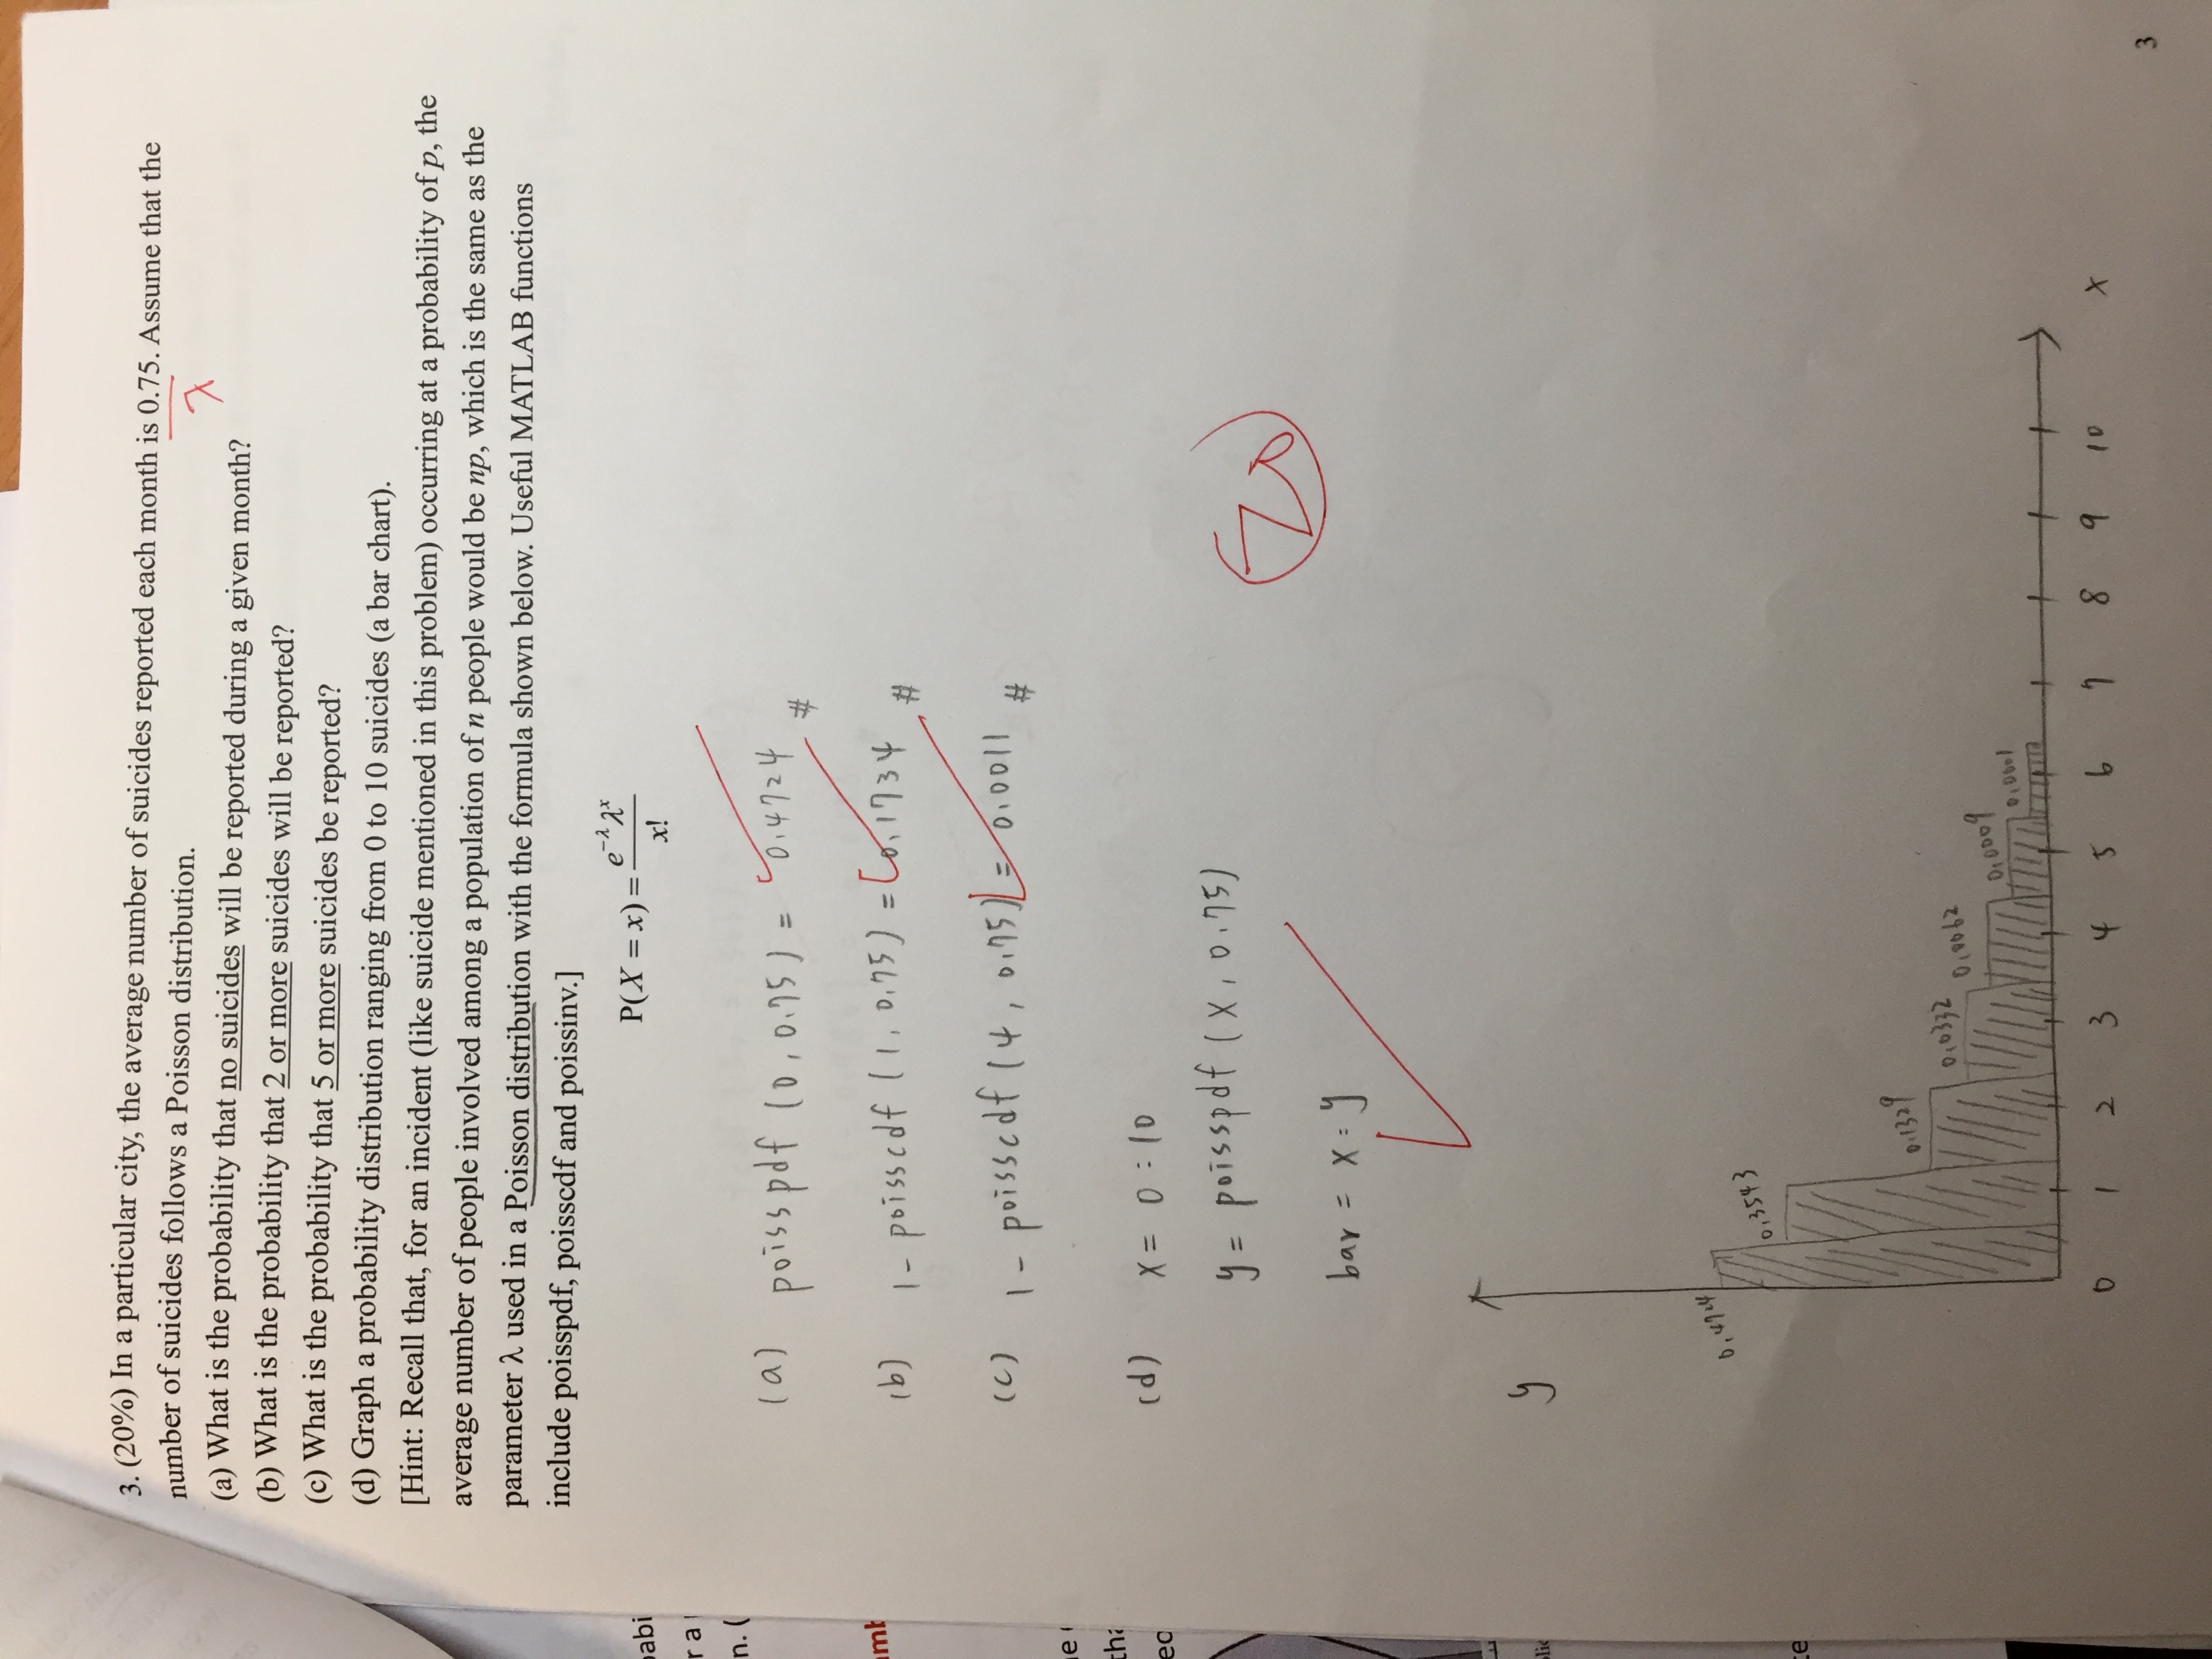 3. (20%) In a particular city, the average number of suicides reported each month is 0.75. Assume that the
number of suicides follows a Poisson distribution.
λ
(a) What is the probability that no suicides will be reported during a given month?
(b) What is the probability that 2 or more suicides will be reported?
(c) What is the probability that 5 or more suicides be reported?
(d) Graph a probability distribution ranging from 0 to 10 suicides (a bar chart).
[Hint: Recall that, for an incident (like suicide mentioned in this problem) occurring at a probability of p, the
average number of people involved among a population of n people would be np, which is the same as the
parameter λ used in a Poisson distribution with the formula shown below. Useful MATLAB functions
include poisspdf, poisscdf and poissinv.]
P(X = x) = e^{-λ} λ^x / x!
(a) poisspdf (0, 0.75) = 0.4724 #
(b) 1 - poisscdf (1, 0.75) = 0.1734 #
(c) 1 - poisscdf (4, 0.75) = 0.0011 #
(d) x = 0 : 10
y = poisspdf (x, 0.75)
20
bar = x : y
y
0.4724
0.3543
0.1329
0.0332
0.0062
0.0009
0.0001
0 1 2 3 4 5 6 7 8 9 10 x
3